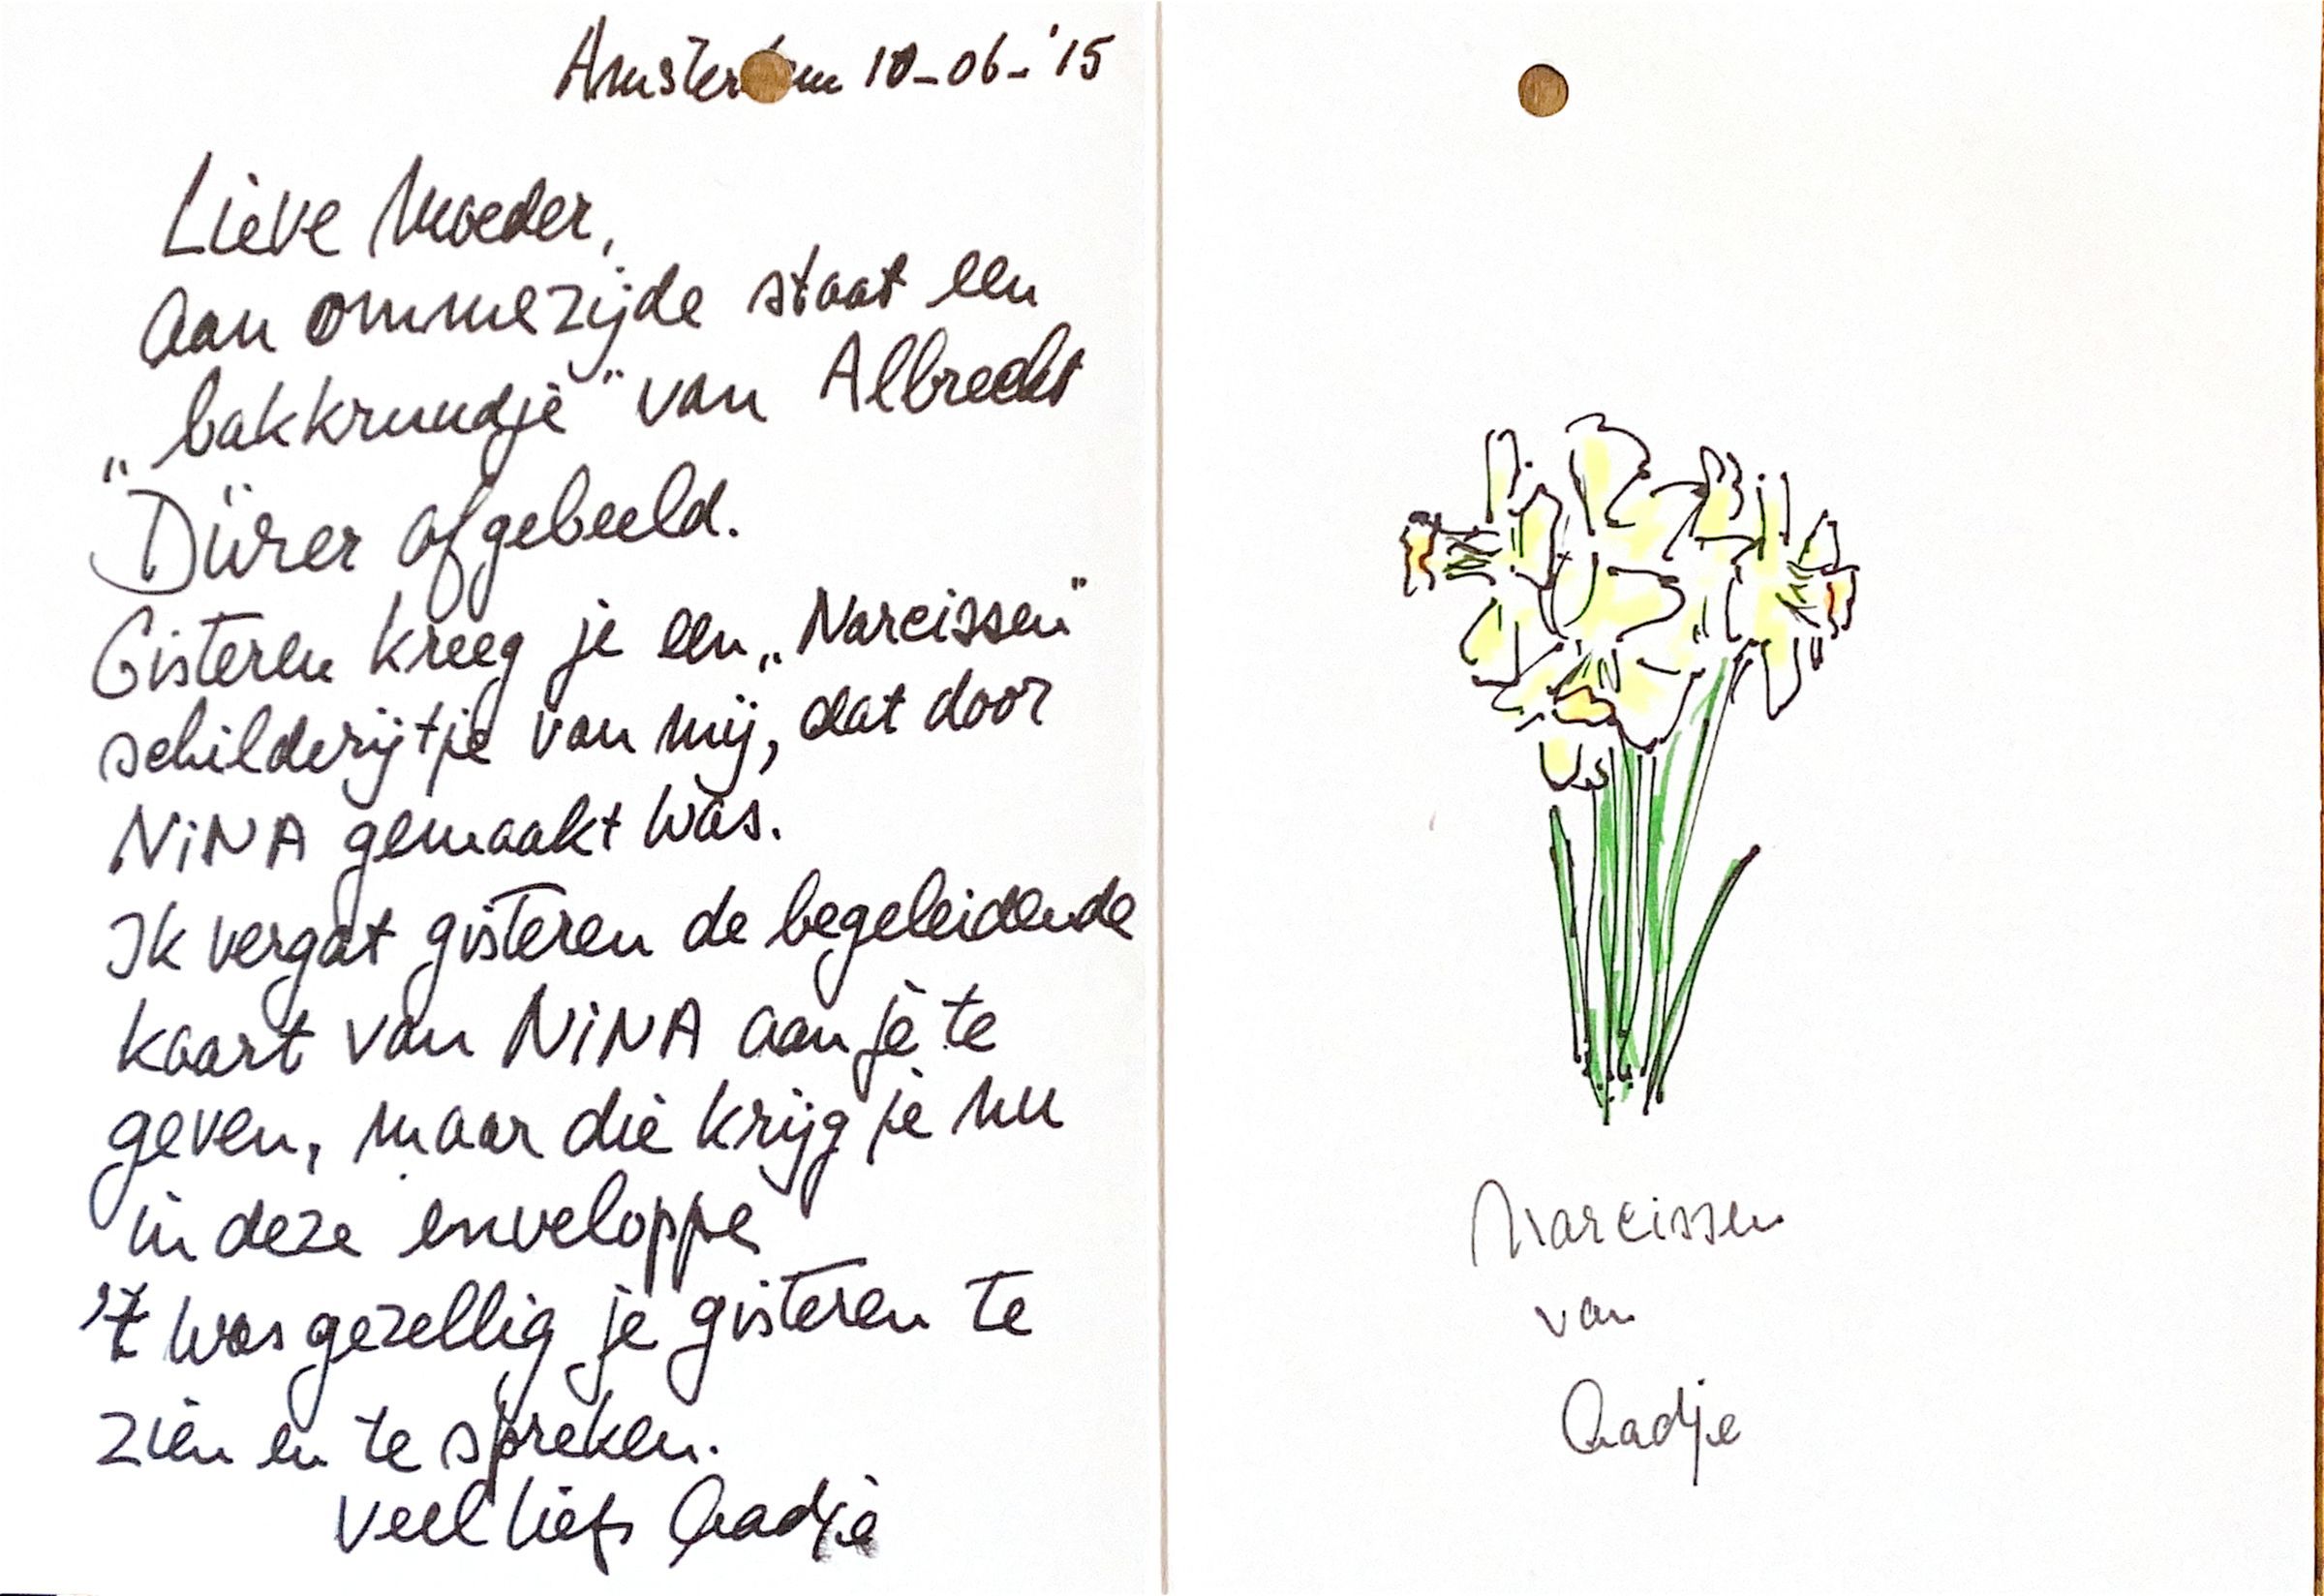 Amsterdam 10-06-'15
Lieve Moeder,
Aan ommezijde staat een
„bakkruudje" van Albrecht
Dürer afgebeeld.
Gisteren kreeg je een „Narcissen"
schilderijtje van mij, dat door
NiNA gemaakt was.
Ik vergat gisteren de begeleidende
kaart van NiNA aan je te
geven, maar die krijg je nu
in deze enveloppe
't was gezellig je gisteren te
zien en te spreken.
veel liefs Aadje
Narcissen
van
Aadje